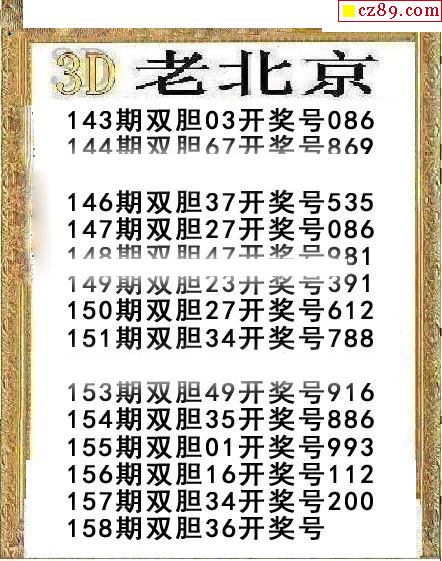 cz89.com
3D 老北京
143期双胆03开奖号086
144期双胆67开奖号869
146期双胆37开奖号535
147期双胆27开奖号086
148期双胆47开奖号981
149期双胆23开奖号391
150期双胆27开奖号612
151期双胆34开奖号788
153期双胆49开奖号916
154期双胆35开奖号886
155期双胆01开奖号993
156期双胆16开奖号112
157期双胆34开奖号200
158期双胆36开奖号